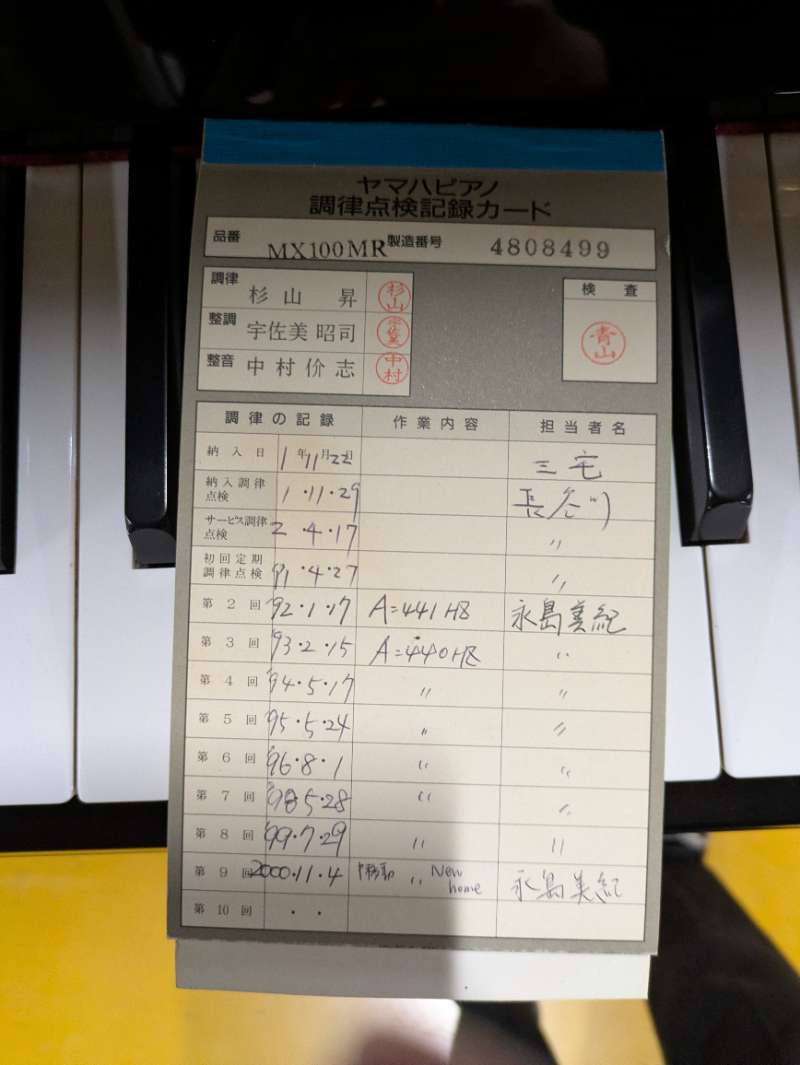 ヤマハピアノ
調律点検記録カード
品番 MX100MR 製造番号 4808499
調律 杉山 昇 杉山 検査
整調 宇佐美昭司 宇佐美 青山
整音 中村价志 中村
調律の記録 作業内容 担当者名
納入日 1年11月22日 三宅
納入調律点検 1・11・29 長谷川
サービス調律点検 2・4・17 〃
初回定期調律点検 '91・4・27 〃
第2回 '92・1・17 A=441HZ 永島美紀
第3回 '93・2・15 A=440HZ 〃
第4回 '94・5・17 〃 〃
第5回 '95・5・24 〃 〃
第6回 '96・8・1 〃 〃
第7回 '98・5・28 〃 〃
第8回 '99・7・29 〃 〃
第9回 2000・11・4 〃 New home 永島美紀
第10回 ・ ・